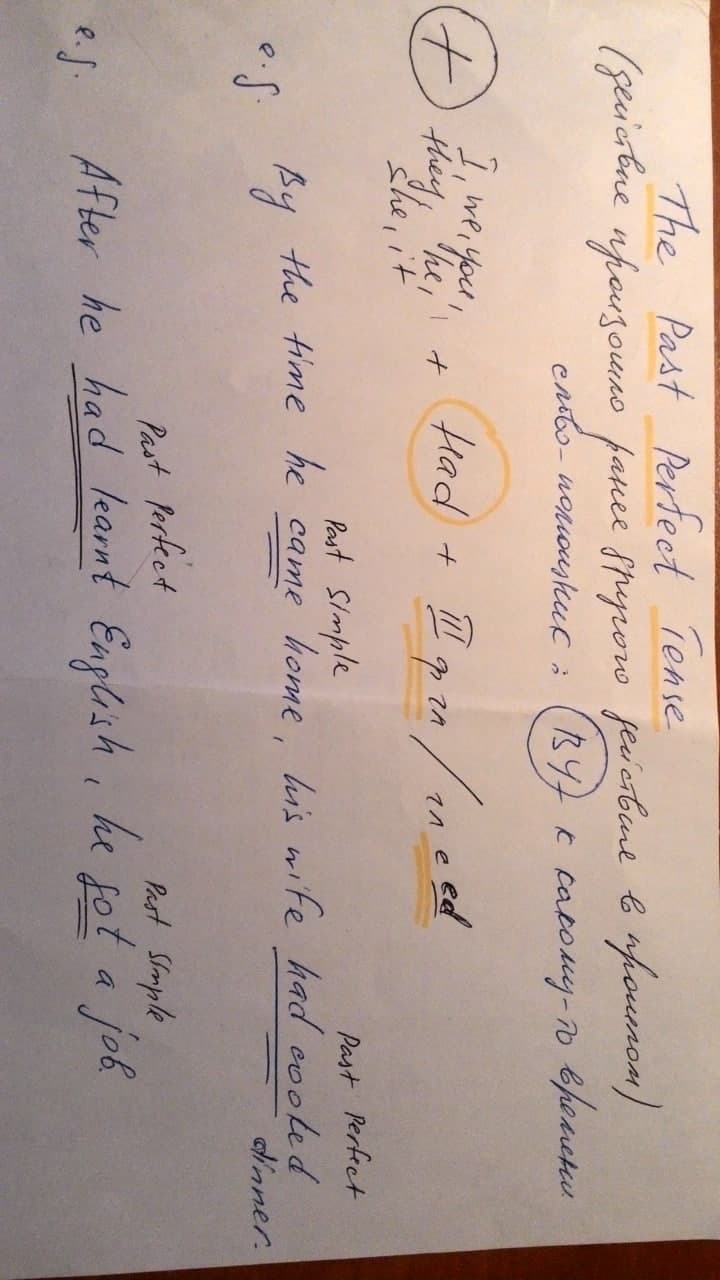 The Past Perfect Tense
(действие произошло ранее другого действие в прошлом)
слово-помощник: BY - к какому-то времени.
+ I, we, you, they, he, she, it + Had + III ф гл / гл с ed
Past Simple Past Perfect
e.g. By the time he came home, his wife had cooked dinner.
Past Perfect Past Simple
e.g. After he had learnt English, he got a job.